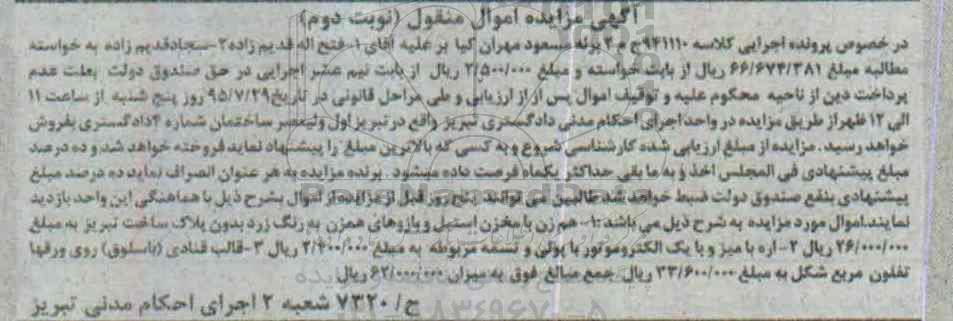 آگهی مزایده اموال منقول (نوبت دوم)
در خصوص پرونده اجرایی کلاسه ۹۴۱۱۱۰ ج م ۲ برله مسعود مهران کیا بر علیه آقای ۱- فتح اله قدیم زاده ۲- سجاد قدیم زاده به خواسته
مطالبه مبلغ ۶۶/۶۷۴/۳۸۱ ریال از بابت خواسته و مبلغ ۳/۵۰۰/۰۰۰ ریال از بابت نیم عشر اجرایی در حق صندوق دولت بعلت عدم
پرداخت دین از ناحیه محکوم علیه و توقیف اموال پس از از ارزیابی و طی مراحل قانونی در تاریخ ۹۵/۷/۲۹ روز پنج شنبه از ساعت ۱۱
الی ۱۲ ظهر از طریق مزایده در واحد اجرای احکام مدنی دادگستری تبریز واقع در تبریز اول ولیعصر ساختمان شماره ۲ دادگستری بفروش
خواهد رسید. مزایده از مبلغ ارزیابی شده کارشناسی شروع و به کسی که بالاترین مبلغ را پیشنهاد نماید فروخته خواهد شد و ده درصد
مبلغ پیشنهادی فی المجلس اخذ و به ما بقی حداکثر یکماه فرصت داده میشود. برنده مزایده به هر عنوان انصراف نماید ده درصد مبلغ
پیشنهادی بنفع صندوق دولت ضبط خواهد شد طالبین می توانند پنج روز قبل از مزایده از اموال بشرح ذیل با هماهنگی این واحد بازدید
نمایند. اموال مورد مزایده به شرح ذیل می باشند: ۱- هم زن با مخزن استیل و بازوهای همزن به رنگ زرد بدون پلاک ساخت تبریز به مبلغ
۲۶/۰۰۰/۰۰۰ ریال ۲- اره با میز و با یک الکتروموتور با پولی و تسمه مربوطه به مبلغ ۲/۴۰۰/۰۰۰ ریال ۳- قالب قنادی (باسلوق) روی ورقها
تفلون مربع شکل به مبلغ ۳۳/۶۰۰/۰۰۰ ریال جمع مبالغ فوق به میزان ۶۲/۰۰۰/۰۰۰ ریال
ج/ ۷۳۲۰ شعبه ۲ اجرای احکام مدنی تبریز